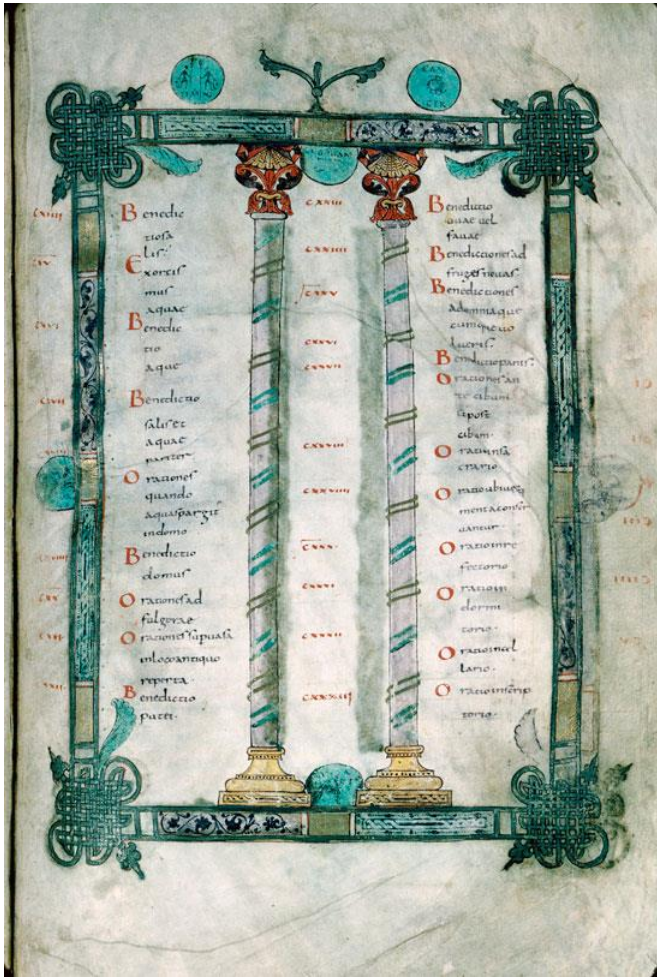 CAN
CER
cxiiii Benedic
tiosa
lis
cxv Exorcis
mus
aquae
cxvi Benedic
tio
aque
cxvii Benedictio
salis et
aquae
pariter
Orationes
quando
aqua spargit
in domo
cxviiii Benedictio
domus
cxx Orationes ad
fulgorae
Orationes sup uasa
in loco antiquo
reperta
cxxii Benedictio
putei
cxxiii Benedictio
uuae uel
fauae
cxxiiii Benedictiones ad
fruges nouas
cxxv Benedictiones
ad omnia que
uolueris
cxxvi Benedictio panis
cxxvii Orationes an
te cibum
et post
cibum
cxxviii Oratio in sa
crario
cxxviiii Oratio ubi uesti
menta conser
uantur
cxxx Oratio in re
fectorio
cxxxi Oratio in
dormi
torio
cxxxii Oratio in cel
lario
cxxxiii Oratio in scrip
torio